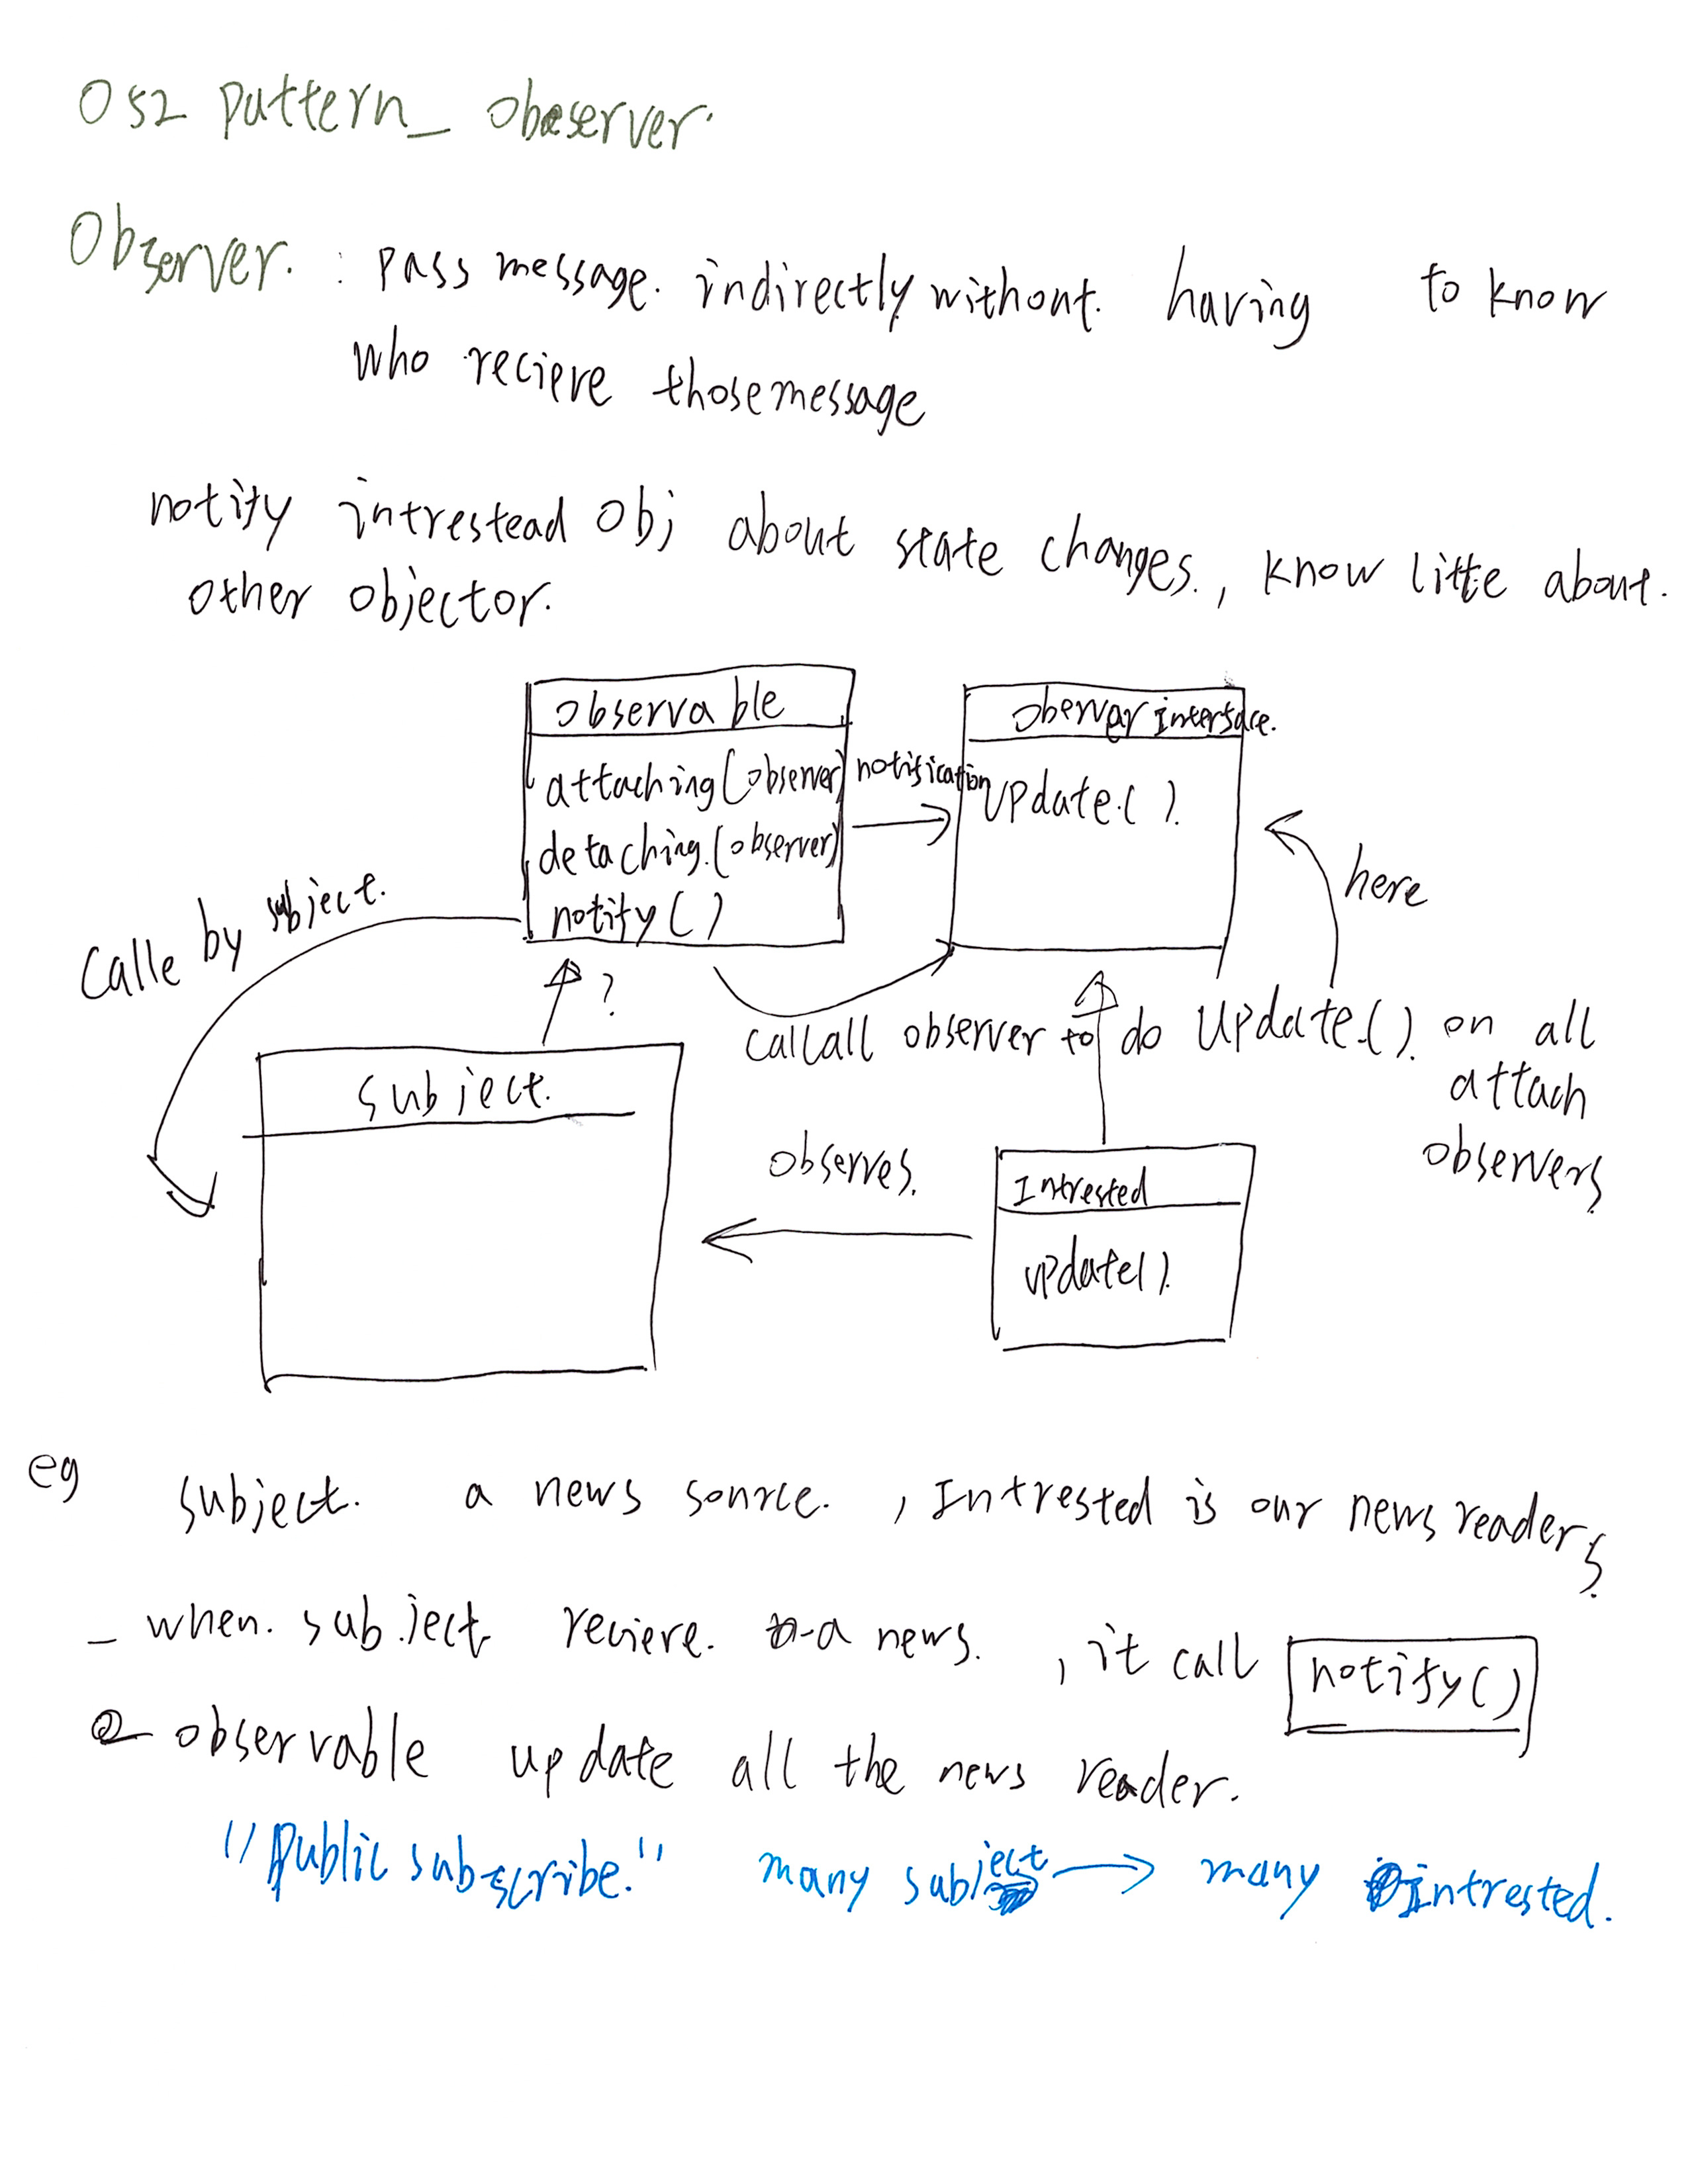 052 pattern_ observer.
Observer. : pass message. indirectly without. having to know
who recieve those message
notify intrestead obj about state changes., know litte about.
other objector.
observable
attaching(observer)
detaching.(observer)
notify()
notification
obervar interface.
update.()
here
calle by subject.
?
call all observer to do update.() on all
attach
observers
subject.
observes.
Intrested
update().
eg subject. a news source. , Intrested is our news readers
- when. subject recieve. a news. , it call notify()
observable update all the news reader.
"public subscribe." many subject → many intrested.